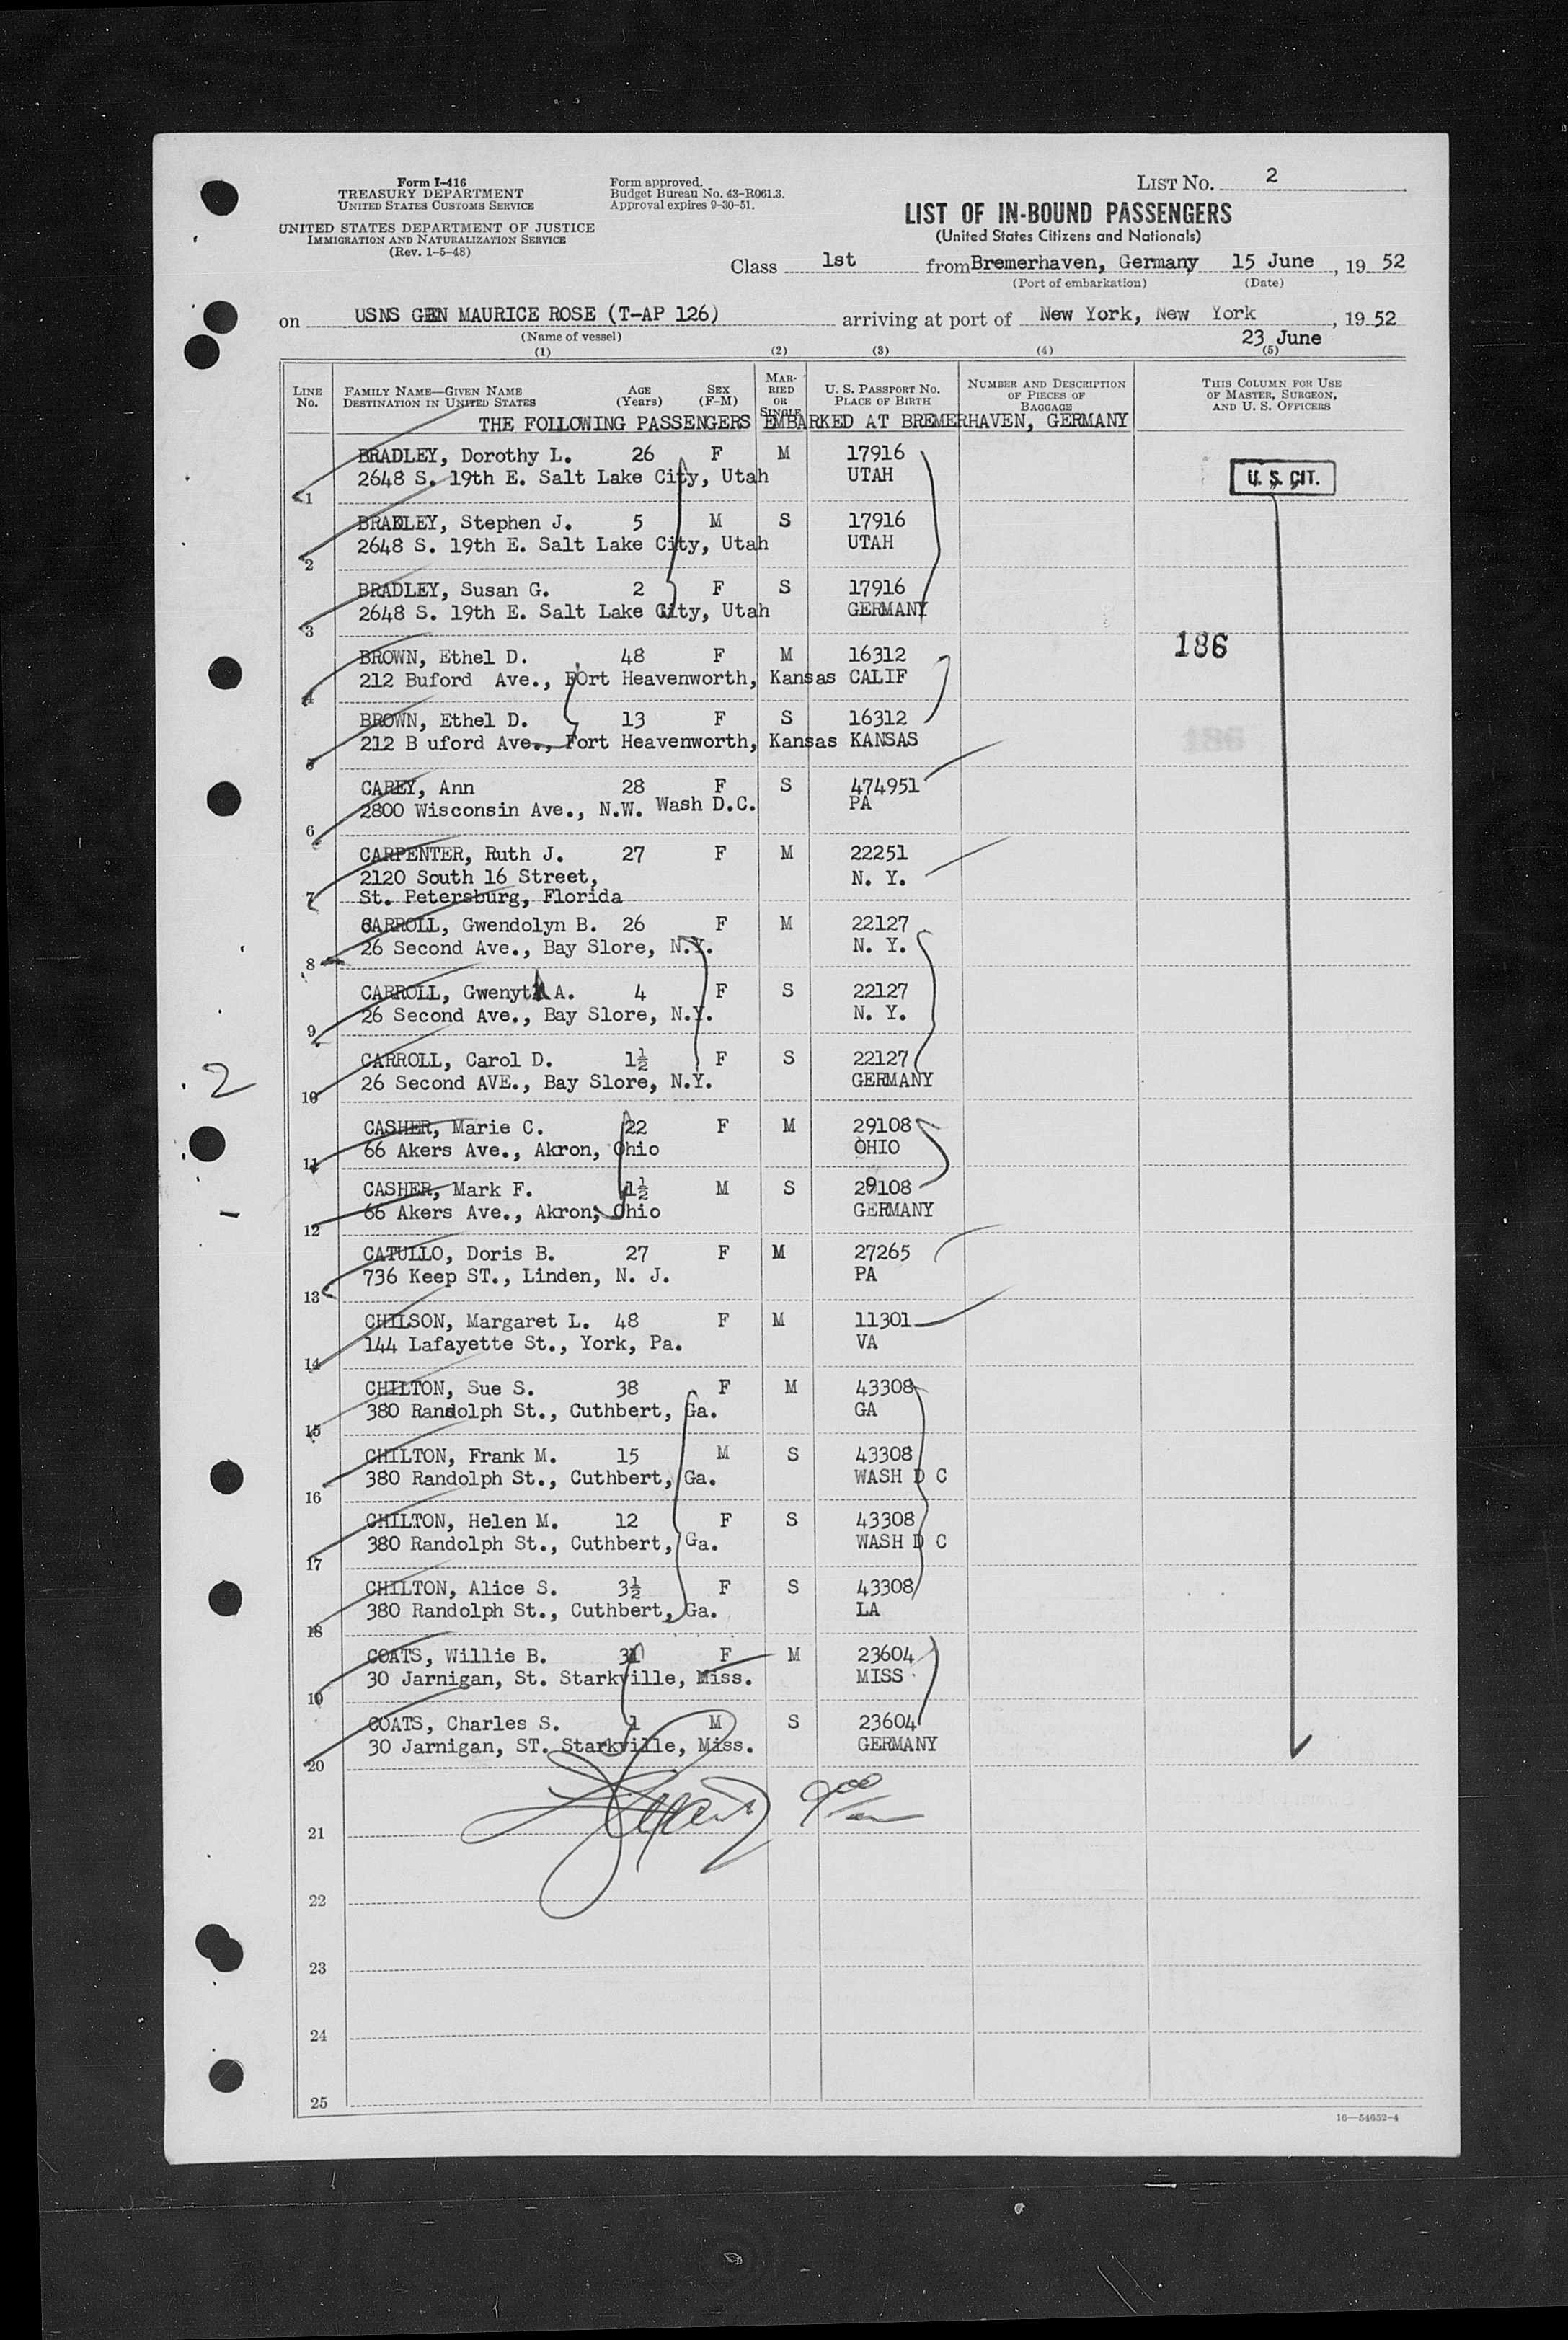 Form I-416
TREASURY DEPARTMENT
UNITED STATES CUSTOMS SERVICE
UNITED STATES DEPARTMENT OF JUSTICE
IMMIGRATION AND NATURALIZATION SERVICE
(Rev. 1-5-48)
Form approved.
Budget Bureau No. 43-R061.3.
Approval expires 9-30-51.
LIST NO. 2
LIST OF IN-BOUND PASSENGERS
(United States Citizens and Nationals)
Class 1st from Bremerhaven, Germany 15 June, 19 52
(Port of embarkation) (Date)
on USNS GEN MAURICE ROSE (T-AP 126) arriving at port of New York, New York, 19 52
(Name of vessel) 23 June
(1) (2) (3) (4) (5)
LINE No. FAMILY NAME—GIVEN NAME DESTINATION IN UNITED STATES AGE (Years) SEX (F-M) MARRIED OR SINGLE U. S. PASSPORT NO. PLACE OF BIRTH NUMBER AND DESCRIPTION OF PIECES OF BAGGAGE THIS COLUMN FOR USE OF MASTER, SURGEON, AND U. S. OFFICERS
THE FOLLOWING PASSENGERS EMBARKED AT BREMERHAVEN, GERMANY
BRADLEY, Dorothy L. 26 F M 17916
1 2648 S. 19th E. Salt Lake City, Utah UTAH U. S. CIT.
BRADLEY, Stephen J. 5 M S 17916
2 2648 S. 19th E. Salt Lake City, Utah UTAH
BRADLEY, Susan G. 2 F S 17916
3 2648 S. 19th E. Salt Lake City, Utah GERMANY
186
BROWN, Ethel D. 48 F M 16312
4 212 Buford Ave., FOrt Heavenworth, Kansas CALIF
BROWN, Ethel D. 13 F S 16312
5 212 B uford Ave., Fort Heavenworth, Kansas KANSAS
186
CAREY, Ann 28 F S 474951
6 2800 Wisconsin Ave., N.W. Wash D.C. PA
CARPENTER, Ruth J. 27 F M 22251
2120 South 16 Street, N. Y.
7 St. Petersburg, Florida
CARROLL, Gwendolyn B. 26 F M 22127
8 26 Second Ave., Bay Slore, N.Y. N. Y.
CARROLL, Gwenyth A. 4 F S 22127
9 26 Second Ave., Bay Slore, N.Y. N. Y.
CARROLL, Carol D. 1½ F S 22127
10 26 Second AVE., Bay Slore, N.Y. GERMANY
2
CASHER, Marie C. 22 F M 29108
11 66 Akers Ave., Akron, Ohio OHIO
CASHER, Mark F. 1½ M S 29108
12 66 Akers Ave., Akron, Ohio GERMANY
CATULLO, Doris B. 27 F M 27265
13 736 Keep ST., Linden, N. J. PA
CHILSON, Margaret L. 48 F M 11301
14 144 Lafayette St., York, Pa. VA
CHILTON, Sue S. 38 F M 43308
15 380 Randolph St., Cuthbert, Ga. GA
CHILTON, Frank M. 15 M S 43308
16 380 Randolph St., Cuthbert, Ga. WASH D C
CHILTON, Helen M. 12 F S 43308
17 380 Randolph St., Cuthbert, Ga. WASH D C
CHILTON, Alice S. 3½ F S 43308
18 380 Randolph St., Cuthbert, Ga. LA
COATS, Willie B. 31 F M 23604
19 30 Jarnigan, St. Starkville, Miss. MISS
COATS, Charles S. 1 M S 23604
20 30 Jarnigan, ST. Starkville, Miss. GERMANY
21
22
23
24
25
16—54652-4